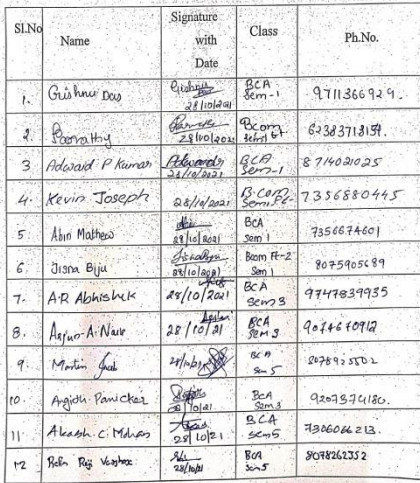 Sl.No Name Signature with Date Class Ph.No.
1. Grishnu Das 28/10/2021 BCA Sem-1 9711366929.
2. 28/10/2021 Bcom 62383718159.
3 Adwaid P Kumar 28/10/2021 BCA Sem-1 8714021025
4. Kevin Joseph 28/10/2021 B.Com Sem 7356880445
5 Abin Mathew 28/10/2021 BCA Sem 1 7356674601
6. Jisna Biju 28/10/2021 Bcom Ft-2 Sem 1 8075905689
7. A.R Abhishek 28/10/2021 BCA Sem 3 9747839935
8. Arjun A. 28/10/21 BCA Sem 3 9074670912
9. Martin BCA Sem 5
10. Argith Panicker 28/10/21 BCA Sem 3
11 Akash. C. Mohan 28/10/21 BCA sem5 7306066213.
12 28/10/21 BCA Sem 5 8078262352